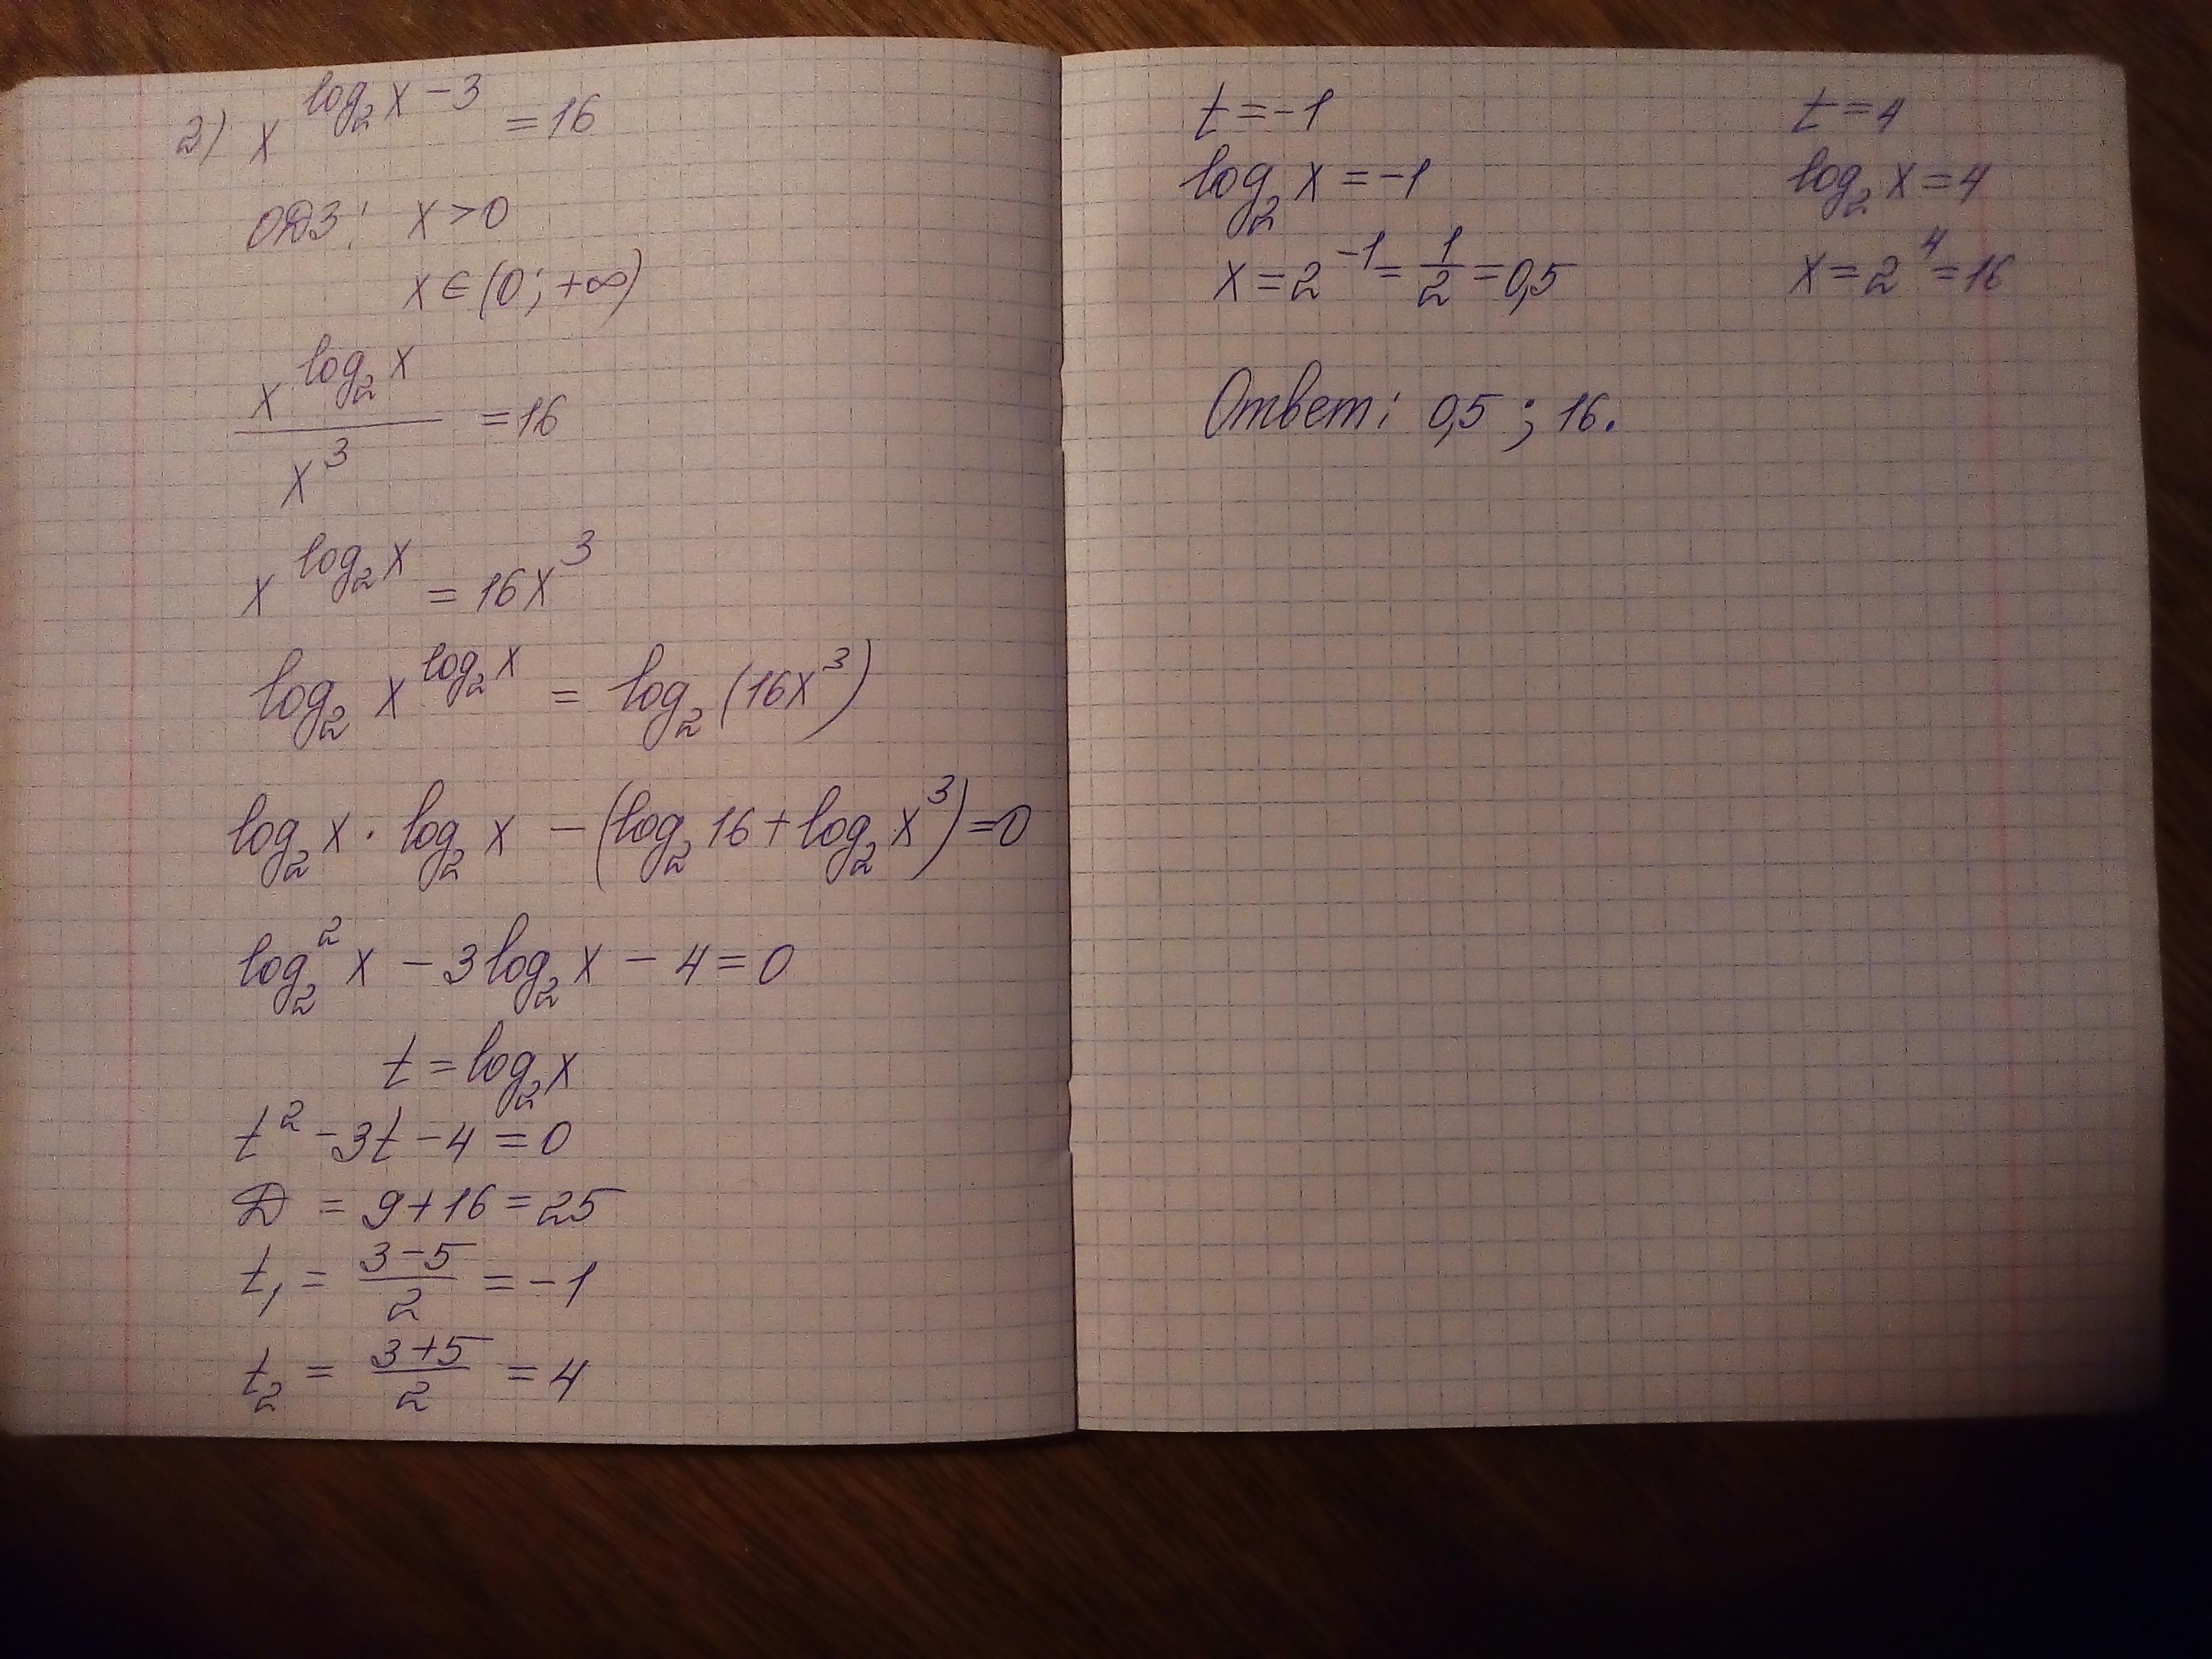 2) x^(log₂x − 3) = 16
ОДЗ: x > 0
x ∈ (0; +∞)
x^(log₂x) / x³ = 16
x^(log₂x) = 16x³
log₂ x^(log₂x) = log₂ (16x³)
log₂x · log₂x − (log₂16 + log₂x³) = 0
log₂²x − 3log₂x − 4 = 0
t = log₂x
t² − 3t − 4 = 0
Д = 9 + 16 = 25
t₁ = (3 − 5) / 2 = −1
t₂ = (3 + 5) / 2 = 4
t = −1
log₂x = −1
x = 2⁻¹ = 1/2 = 0,5
t = 4
log₂x = 4
x = 2⁴ = 16
Ответ: 0,5 ; 16.